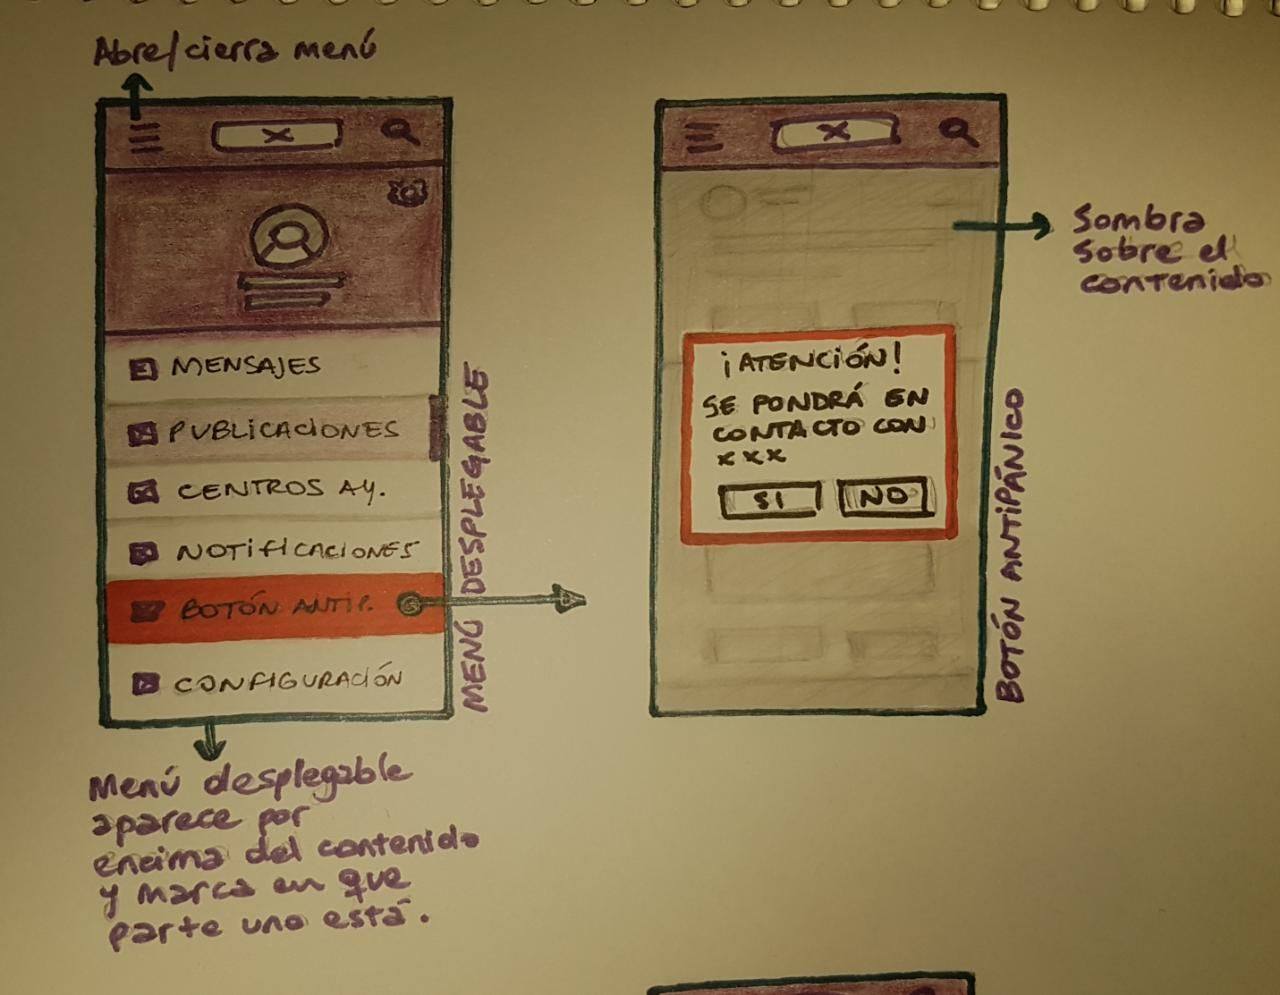 Abre/cierra menú
X
MENSAJES
PUBLICACIONES
CENTROS AY.
NOTIFICACIONES
BOTÓN ANTIP.
CONFIGURACIÓN
MENÚ DESPLEGABLE
Menú desplegable
aparece por
encima del contenido
y marca en que
parte uno está.
X
Sombra
sobre el
contenido
¡ATENCIÓN!
SE PONDRÁ EN
CONTACTO CON
XXX
SI
NO
BOTÓN ANTIPÁNICO